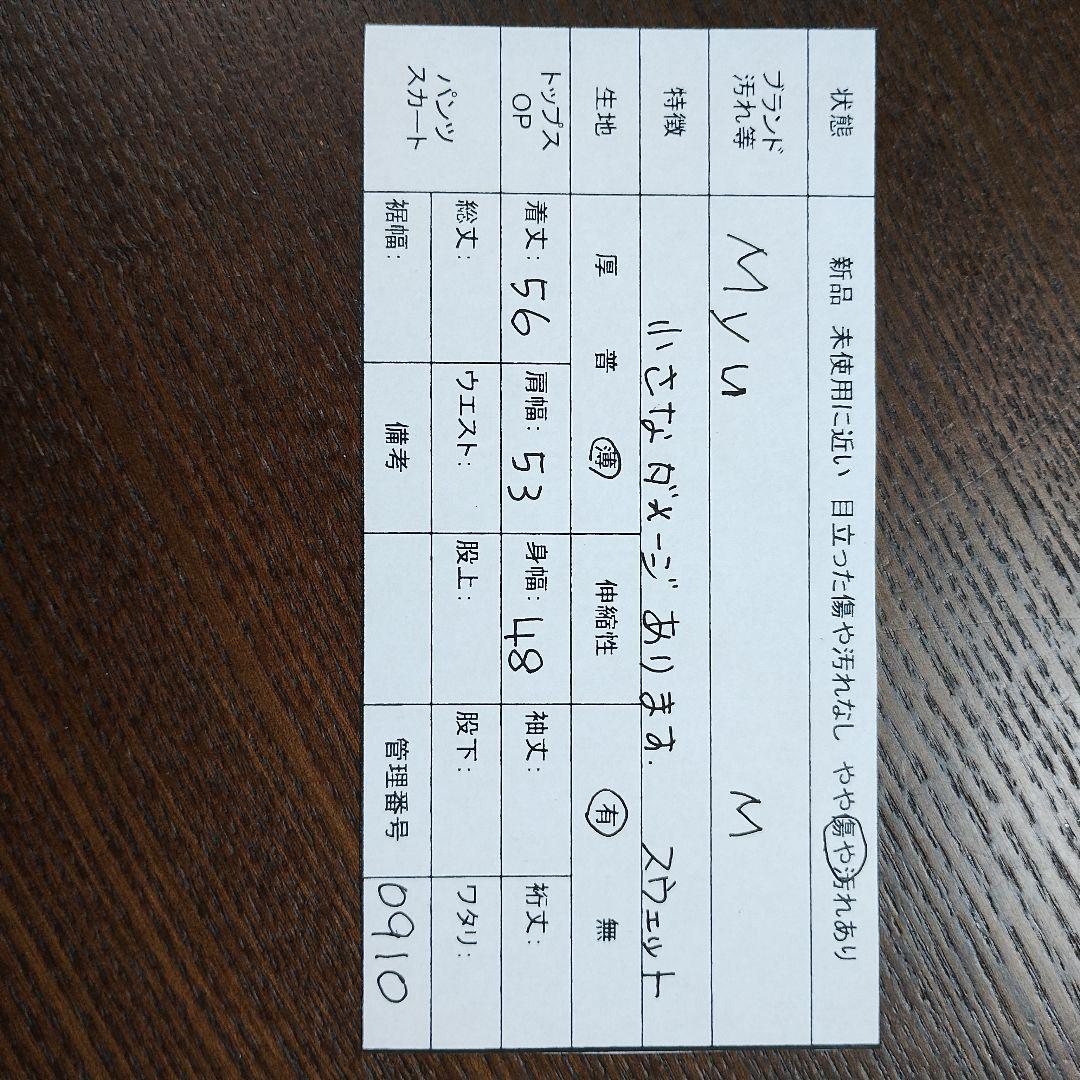 状態 新品 未使用に近い 目立った傷や汚れなし やや傷や汚れあり
ブランド Myu M
汚れ等
特徴 小さなダメージあります. スウェット
生地 厚 普 薄 伸縮性 有 無
トップス 着丈: 56 肩幅: 53 身幅: 48 袖丈: 裄丈:
OP
パンツ 総丈: ウエスト: 股上: 股下: ワタリ:
スカート 裾幅: 備考 管理番号 0910